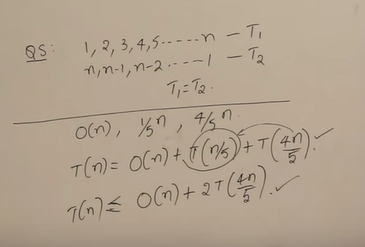 QS: 1, 2, 3, 4, 5 ------ n — T₁
n, n-1, n-2 ------ 1 — T₂
T₁ = T₂.
O(n), 1/5 n, 4/5 n.
T(n) = O(n) + T(n/5) + T(4n/5) ✓
T(n) ≤ O(n) + 2T(4n/5). ✓